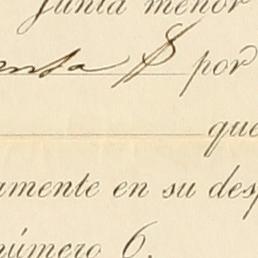 Junta menor
$ por
que
amente en su des
número 6.